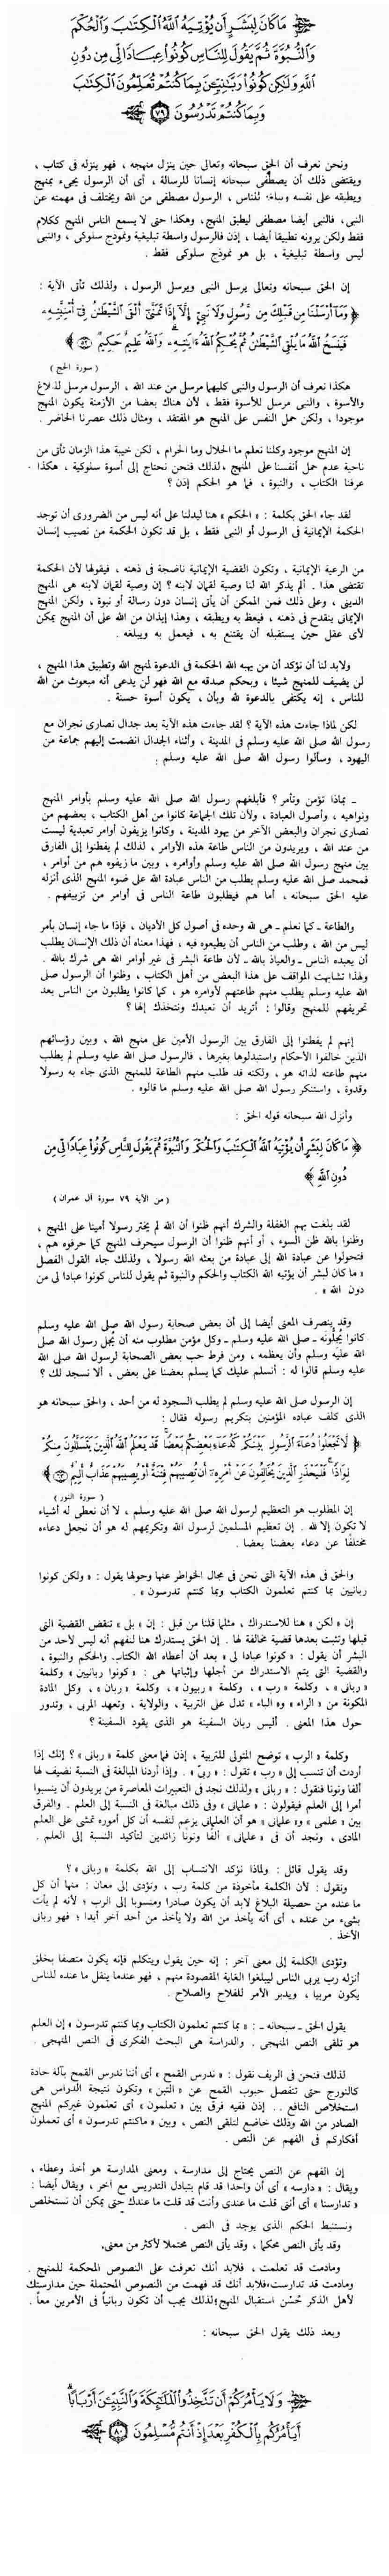 مَا كَانَ لِبَشَرٍ أَن يُؤْتِيَهُ اللَّهُ الْكِتَابَ وَالْحُكْمَ
وَالنُّبُوَّةَ ثُمَّ يَقُولَ لِلنَّاسِ كُونُوا عِبَادًا لِّي مِن دُونِ
اللَّهِ وَلَٰكِن كُونُوا رَبَّانِيِّينَ بِمَا كُنتُمْ تُعَلِّمُونَ الْكِتَابَ
وَبِمَا كُنتُمْ تَدْرُسُونَ ﴿٧٩﴾
ونحن نعرف أن الحق سبحانه وتعالى حين ينزل منهجه ، فهو ينزله في كتاب ،
ويقتضى ذلك أن يصطفى سبحانه إنسانا للرسالة ، أى أن الرسول يجىء بمنهج
ويطبقه على نفسه وبلغه للناس ، الرسول مصطفى من الله ويختلف في مهمته عن
النبى، فالنبى أيضا مصطفى ليطبق المنهج، وهكذا حتى لا يسمع الناس المنهج ككلام
فقط ولكن يرونه تطبيقا أيضا ، إذن فالرسول واسطة تبليغية ونموذج سلوكى ، والنبى
ليس واسطة تبليغية ، بل هو نموذج سلوكى فقط .
إن الحق سبحانه وتعالى يرسل النبى ويرسل الرسول ، ولذلك تأتى الآية :
﴿ وَمَا أَرْسَلْنَا مِن قَبْلِكَ مِن رَّسُولٍ وَلَا نَبِيٍّ إِلَّا إِذَا تَمَنَّىٰ أَلْقَى الشَّيْطَانُ فِي أُمْنِيَّتِهِ
فَيَنسَخُ اللَّهُ مَا يُلْقِي الشَّيْطَانُ ثُمَّ يُحْكِمُ اللَّهُ آيَاتِهِ ۗ وَاللَّهُ عَلِيمٌ حَكِيمٌ ﴿٥٢﴾ ﴾
( سورة الحج )
هكذا نعرف أن الرسول والنبى كليهما مرسل من عند الله ، الرسول مرسل للبلاغ
والأسوة ، والنبى مرسل للأسوة فقط ، لأن هناك بعضا من الأزمنة يكون المنهج
موجودا ، ولكن حمل النفس على المنهج هو المفتقد ، ومثال ذلك عصرنا الحاضر .
إن المنهج موجود وكلنا نعلم ما الحلال وما الحرام ، لكن خيبة هذا الزمان تأتى من
ناحية عدم حمل أنفسنا على المنهج ، لذلك فنحن نحتاج إلى أسوة سلوكية ، هكذا
عرفنا الكتاب ، والنبوة ، فما هو الحكم إذن ؟
لقد جاء الحق بكلمة : « الحكم » هنا ليدلنا على أنه ليس من الضرورى أن توجد
الحكمة الإيمانية في الرسول أو النبى فقط ، بل قد تكون الحكمة من نصيب إنسان
من الرعية الإيمانية ، وتكون القضية الإيمانية ناضجة فى ذهنه ، فيقولها لأن الحكمة
تقتضى هذا . ألم يذكر الله لنا وصية لقمان لابنه ؟ إن وصية لقمان لابنه هى المنهج
الدينى ، وعلى ذلك فمن الممكن أن يأتى إنسان دون رسالة أو نبوة ، ولكن المنهج
الإيمانى ينقدح فى ذهنه ، فيعظ به ويطبقه ، وهذا إيذان من الله على أن المنهج يمكن
لأى عقل حين يستقبله أن يقتنع به ، فيعمل به ويبلغه .
ولابد لنا أن نؤكد أن من يهبه الله الحكمة فى الدعوة لمنهج الله وتطبيق هذا المنهج ،
لن يضيف للمنهج شيئا ، وبحكم صدقه مع الله فهو لن يدعى أنه مبعوث من الله
للناس ، إنه يكتفى بالدعوة لله وبأن ، يكون أسوة حسنة .
لكن لماذا جاءت هذه الآية ؟ لقد جاءت هذه الآية بعد جدال نصارى نجران مع
رسول الله صلى الله عليه وسلم فى المدينة ، وأثناء الجدال انضمت إليهم جماعة من
اليهود ، وسألوا رسول الله صلى الله عليه وسلم :
ـ بماذا تؤمن وتأمر ؟ فأبلغهم رسول الله صلى الله عليه وسلم بأوامر المنهج
ونواهيه ، وأصول العبادة ، ولأن تلك الجماعة كانوا من أهل الكتاب ، بعضهم من
نصارى نجران والبعض الآخر من يهود المدينة ، وكانوا يزيفون أوامر تعبدية ليست
من عند الله ، ويريدون من الناس طاعة هذه الأوامر ، لذلك لم يفطنوا إلى الفارق
بين منهج رسول الله صلى الله عليه وسلم وأوامره ، وبين ما زيفوه هم من أوامر ،
فمحمد صلى الله عليه وسلم يطلب من الناس عبادة الله على ضوء المنهج الذى أنزله
عليه الحق سبحانه ، أما هم فيطلبون طاعة الناس فى أوامر من تزييفهم .
والطاعة ـ كما نعلم ـ هى لله وحده فى أصول كل الأديان ، فإذا ما جاء إنسان بأمر
ليس من الله ، وطلب من الناس أن يطيعوه فيه ، فهذا معناه أن ذلك الإنسان يطلب
أن يعبده الناس ـ والعياذ بالله ـ لأن طاعة البشر فى غير أوامر الله هى شرك بالله .
ولهذا تشابهت المواقف على هذا البعض من أهل الكتاب ، وظنوا أن الرسول صلى
الله عليه وسلم يطلب منهم طاعتهم لأوامره هو ، كما كانوا يطلبون من الناس بعد
تحريفهم للمنهج وقالوا : أتريد أن نعبدك ونتخذك إلها ؟
إنهم لم يفطنوا إلى الفارق بين الرسول الأمين على منهج الله ، وبين رؤسائهم
الذين خالفوا الأحكام واستبدلوها بغيرها ، فالرسول صلى الله عليه وسلم لم يطلب
منهم طاعته لذاته هو ، ولكنه قد طلب منهم الطاعة للمنهج الذى جاء به رسولا
وقدوة ، واستنكر رسول الله صلى الله عليه وسلم ما قالوه .
وأنزل الله سبحانه قوله الحق :
﴿ مَا كَانَ لِبَشَرٍ أَن يُؤْتِيَهُ اللَّهُ الْكِتَابَ وَالْحُكْمَ وَالنُّبُوَّةَ ثُمَّ يَقُولَ لِلنَّاسِ كُونُوا عِبَادًا لِّي مِن
دُونِ اللَّهِ ﴾
( من الآية ٧٩ سورة آل عمران )
لقد بلغت بهم الغفلة والشرك أنهم ظنوا أن الله لم يختر رسولا أمينا على المنهج ،
وظنوا بالله ظن السوء ، أو أنهم ظنوا أن الرسول سيحرف المنهج كما حرفوه هم ،
فتحولوا عن عبادة الله إلى عبادة من بعثه الله رسولا ، ولذلك جاء القول الفصل
« ما كان لبشر أن يؤتيه الله الكتاب والحكم والنبوة ثم يقول للناس كونوا عبادا لى من
دون الله » .
وقد ينصرف المعنى أيضا إلى أن بعض صحابة رسول الله صلى الله عليه وسلم
كانوا يُجلُّونه ـ صلى الله عليه وسلم ـ وكل مؤمن مطلوب منه أن يُجل رسول الله صلى
الله عليه وسلم وأن يعظمه ، ومن فرط حب بعض الصحابة لرسول الله صلى الله
عليه وسلم قالوا له : أنسلم عليك كما يسلم بعضنا على بعض ، ألا نسجد لك ؟
إن الرسول صلى الله عليه وسلم لم يطلب السجود له من أحد ، والحق سبحانه هو
الذى كلف عباده المؤمنين بتكريم رسوله فقال :
﴿ لَّا تَجْعَلُوا دُعَاءَ الرَّسُولِ بَيْنَكُمْ كَدُعَاءِ بَعْضِكُم بَعْضًا ۚ قَدْ يَعْلَمُ اللَّهُ الَّذِينَ يَتَسَلَّلُونَ مِنكُمْ
لِوَاذًا ۚ فَلْيَحْذَرِ الَّذِينَ يُخَالِفُونَ عَنْ أَمْرِهِ أَن تُصِيبَهُمْ فِتْنَةٌ أَوْ يُصِيبَهُمْ عَذَابٌ أَلِيمٌ ﴿٦٣﴾ ﴾
( سورة النور )
إن المطلوب هو التعظيم لرسول الله صلى الله عليه وسلم ، لا أن نعطى له أشياء
لا تكون إلا لله . إن تعظيم المسلمين لرسول الله وتكريمهم له هو أن نجعل دعاءه
مختلفا عن دعاء بعضنا بعضا .
والحق فى هذه الآية التى نحن فى مجال الخواطر عنها وحولها يقول : « ولكن كونوا
ربانيين بما كنتم تعلمون الكتاب وبما كنتم تدرسون » .
إن « لكن » هنا للاستدراك ، مثلما قلنا من قبل : إن « بلى » تنقض القضية التى
قبلها وتثبت بعدها قضية مخالفة لها . إن الحق يستدرك هنا لنفهم أنه ليس لأحد من
البشر أن يقول : « كونوا عبادا لى » بعد أن أعطاه الله الكتاب والحكم والنبوة ،
والقضية التى يتم الاستدراك من أجلها وإثباتها هى : « كونوا ربانيين » وكلمة
« ربانى » ، وكلمة « رب » ، وكلمة « ربيون » ، وكلمة « ربان » ، وكل المادة
المكونة من « الراء » و« الباء » تدل على التربية ، والولاية ، وتعهد المربى ، وتدور
حول هذا المعنى . أليس ربان السفينة هو الذى يقود السفينة ؟
وكلمة « الرب » توضح المتولى للتربية ، إذن فما معنى كلمة « ربانى » ؟ إنك إذا
أردت أن تنسب إلى « رب » تقول : « ربى » . وإذا أردنا المبالغة فى النسبة نضيف لها
ألفا ونونا فنقول : « ربانى » ولذلك نجد فى التعبيرات المعاصرة من يريدون أن ينسبوا
أمرا إلى العلم فيقولون : « علمانى » وفى ذلك مبالغة فى النسبة إلى العلم . والفرق
بين « علمى » و« علمانى » هو أن العلمانى يزعم لنفسه أن كل أموره تمشى على العلم
المادى ، ونجد أن فى « علمانى » ألفا ونونا زائدين لتأكيد النسبة إلى العلم .
وقد يقول قائل : ولماذا نؤكد الانتساب إلى الله بكلمة « ربانى » ؟
ونقول : لأن الكلمة مأخوذة من كلمة رب ، وتؤدى إلى معان : منها أن كل
ما عنده من حصيلة البلاغ لابد أن يكون صادرا ومنسوبا إلى الرب ؛ لأنه لم يأت
بشىء من عنده ، أى أنه يأخذ من الله ولا يأخذ من أحد آخر أبدا ؛ فهو ربانى
الأخذ .
وتؤدى الكلمة إلى معنى آخر : إنه حين يقول ويتكلم فإنه يكون متصفا بخلق
أنزله رب يربى الناس ليبلغوا الغاية المقصودة منهم ، فهو عندما ينقل ما عنده للناس
يكون مربيا ، ويدبر الأمر للفلاح والصلاح .
يقول الحق ـ سبحانه ـ : « بما كنتم تعلمون الكتاب وبما كنتم تدرسون » إن العلم
هو تلقى النص المنهجى . والدراسة هى البحث الفكرى فى النص المنهجى .
لذلك فنحن فى الريف نقول : « ندرس القمح » أى أننا ندرس القمح بآلة حادة
كالنورج حتى تنفصل حبوب القمح عن « التبن » وتكون نتيجة الدراس هى
استخلاص النافع . . إذن ففيه فرق بين « تعلمون » أى تعلمون غيركم المنهج
الصادر من الله وذلك خاضع لتلقى النص ، وبين « ماكنتم تدرسون » أى تعملون
أفكاركم فى الفهم عن النص .
إن الفهم عن النص يحتاج إلى مدارسة ، ومعنى المدارسة هو أخذ وعطاء ،
ويقال : « دارسه » أى أن واحدا قد قام بتبادل التدريس مع آخر ، ويقال أيضا :
« تدارسنا » أى أننى قلت ما عندى وأنت قد قلت ما عندك حتى يمكن أن نستخلص
ونستنبط الحكم الذى يوجد فى النص .
وقد يأتى النص محكما ، وقد يأتى النص محتملا لأكثر من معنى.
ومادمت قد تعلمت ، فلابد أنك تعرفت على النصوص المحكمة للمنهج .
ومادمت قد تدارست،فلابد أنك قد فهمت من النصوص المحتملة حين مدارستك
لأهل الذكر حُسْن استقبال المنهج؛لذلك يجب أن تكون ربانياً فى الأمرين معاً .
وبعد ذلك يقول الحق سبحانه :
وَلَا يَأْمُرَكُمْ أَن تَتَّخِذُوا الْمَلَائِكَةَ وَالنَّبِيِّينَ أَرْبَابًا ۗ
أَيَأْمُرُكُم بِالْكُفْرِ بَعْدَ إِذْ أَنتُم مُّسْلِمُونَ ﴿٨٠﴾